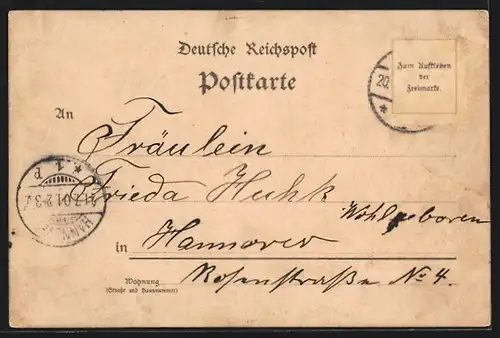 Deutsche Reichspost
Postkarte
Zum Aufkleben
der
Freimarke.
20.
An
Fräulein
Frieda Huhk
Wohlgeboren
in Hannover
Wohnung
(Straße und Hausnummer)
Rosenstraße No 4.
HANNOVER
21.7.01.
1 P